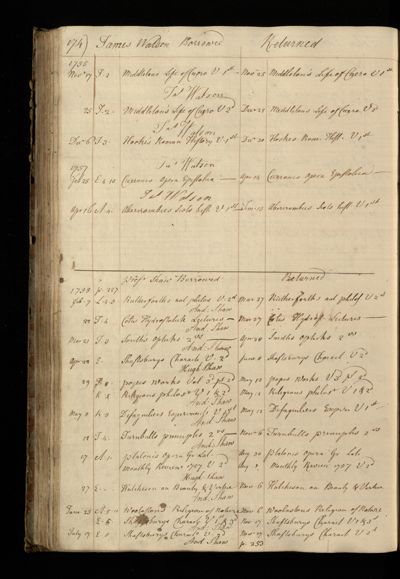 174) James Watson Borrowed Returned
Nov 17 T. 2 Middletons Life of Cicero V 1st Nov 25 Middletons Life of Cicero V 1st
Jas Watson
25 T. 2 Middletons Life of Cicero V 2d Decr 21 Middletons Life of Cicero V 2d
Jas Watson
Decr 6 T. 3 Hookes Roman History V 1st Hookes Rom. Hist. V 1st
Jas Watson
1757
Feb 25 Ciceronis Opera Epistolica Apr Ciceronis Opera Epistolica
Jas Watson
Apr 16 Abercrombies Scots Hist. V 1st Abercrombies Scots Hist. V 1st
Profr Shaw Borrowed Returned
Feb 7 Rutherfurths nat philos V 2d Mar 27 Rutherfurths nat philos V 2d
And. Shaw
Cotes Hydrostatick Lectures Mar 27 Cotes Hydrost. Lectures
And. Shaw
Mar 21 Smiths Opticks 2 vol Apr 20 Smiths Opticks 2 vol
And. Shaw
Shaftsburys Charact. V 2d June 8 Shaftsburys Charact V 2d
Hugh Shaw
29 popes works Vol 3d May 10 popes works V 3d
Religious philosr V 1 & 2 May 2 Religious philosr V 1 & 2
And. Shaw
May 8 Desaguliers Experiments V 1st May 12 Desaguliers Experim V 1st
And. Shaw
18 Turnbulls principles 2 vol Nov 6 Turnbulls principles 2 vol
And. Shaw
17 platonis opera Gr. Lat. Aug 20 platonis opera Gr Lat.
Monthly Review 1757 V 2d Aug Monthly Review 1757 V 2d
Hugh Shaw
27 Hutcheson on Beauty & Virtue Nov 6 Hutcheson on Beauty & Virtue
And. Shaw
June 23 Woolastons Religion of Nature Nov Woolastons Religion of Nature
E. 6 Shaftsburys Charact V 1 & 3d Nov 17 Shaftsburys Charact V 1 & 3d
July 19 Shaftsburys Charact V 2d Nov 17 Shaftsburys Charact V 2d
And. Shaw p. 253